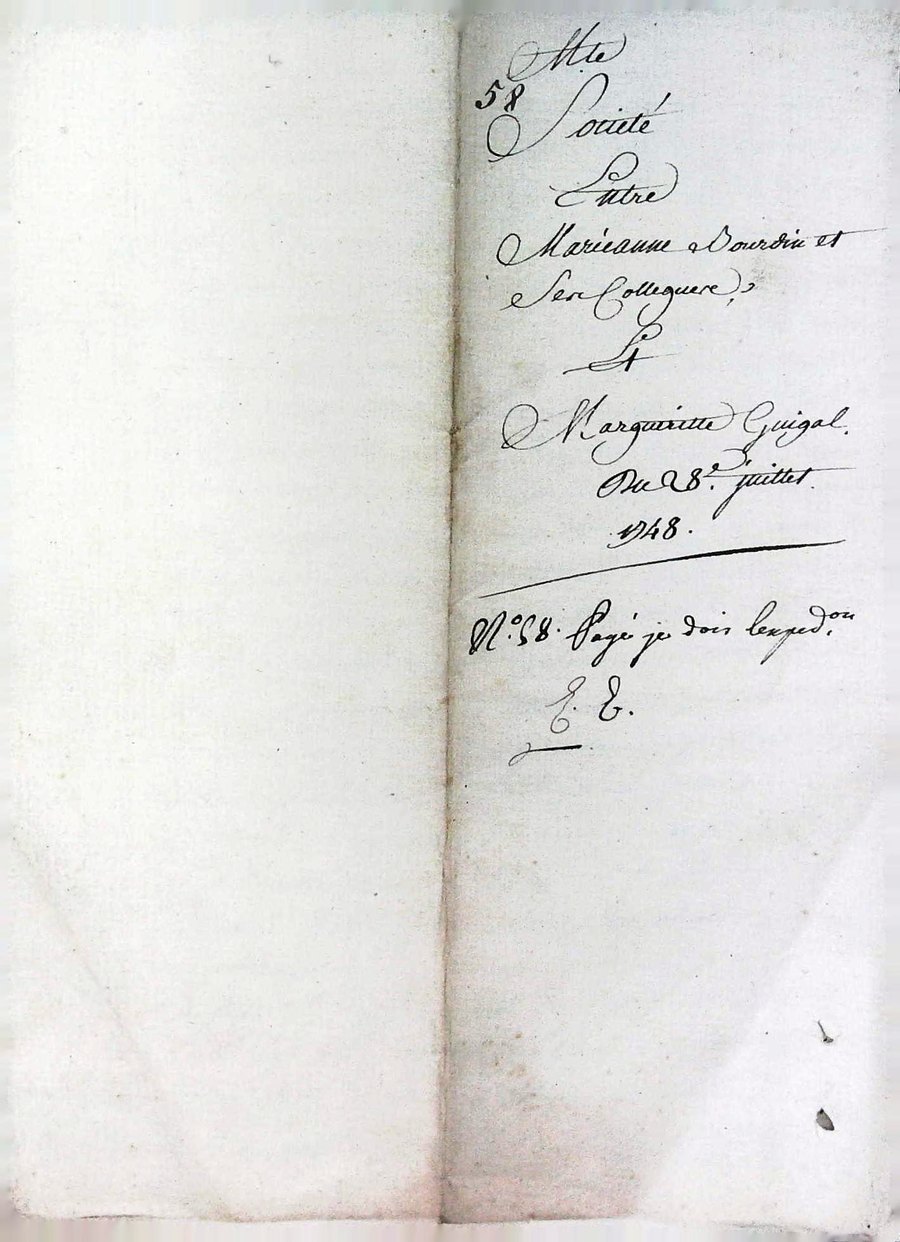 Mte
58
Societé
Entre
Marieanne Bourdin et
Ses Collegues,
Et
Marguéritte Guigal.
Du 28e. juillet
1748.
No. 58. Payé je dois lexped.on
E. E.